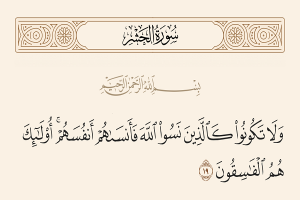 سُورَةُ الحَشْرِ
بِسْمِ اللَّهِ الرَّحْمَٰنِ الرَّحِيمِ
وَلَا تَكُونُوا۟ كَٱلَّذِينَ نَسُوا۟ ٱللَّهَ فَأَنسَىٰهُمْ أَنفُسَهُمْ ۚ أُو۟لَـٰٓئِكَ
هُمُ ٱلْفَـٰسِقُونَ ١٩